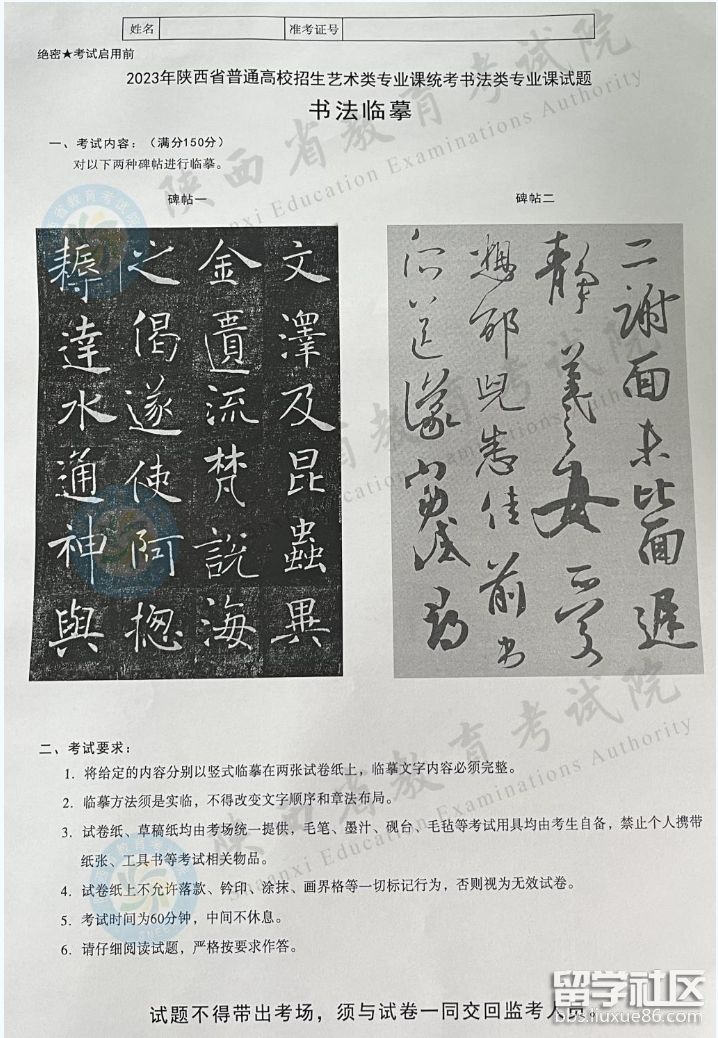 姓名 准考证号
绝密★考试启用前
2023年陕西省普通高校招生艺术类专业课统考书法类专业课试题
书法临摹
一、考试内容：（满分150分）
对以下两种碑帖进行临摹。
碑帖一
文澤及昆蟲異
金匱流梵說海
之偈遂使阿揔
耨達水通神與
碑帖二
二謝面未比面遲
靜羲之女
想邵兒悉佳前
所送議當
二、考试要求：
1. 将给定的内容分别以竖式临摹在两张试卷纸上，临摹文字内容必须完整。
2. 临摹方法须是实临，不得改变文字顺序和章法布局。
3. 试卷纸、草稿纸均由考场统一提供，毛笔、墨汁、砚台、毛毡等考试用具均由考生自备，禁止个人携带
纸张、工具书等考试相关物品。
4. 试卷纸上不允许落款、钤印、涂抹、画界格等一切标记行为，否则视为无效试卷。
5. 考试时间为60分钟，中间不休息。
6. 请仔细阅读试题，严格按要求作答。
试题不得带出考场，须与试卷一同交回监考人员。
陕西省教育考试院
Shaanxi Education Examinations Authority
留学社区
bbs.liuxue86.com